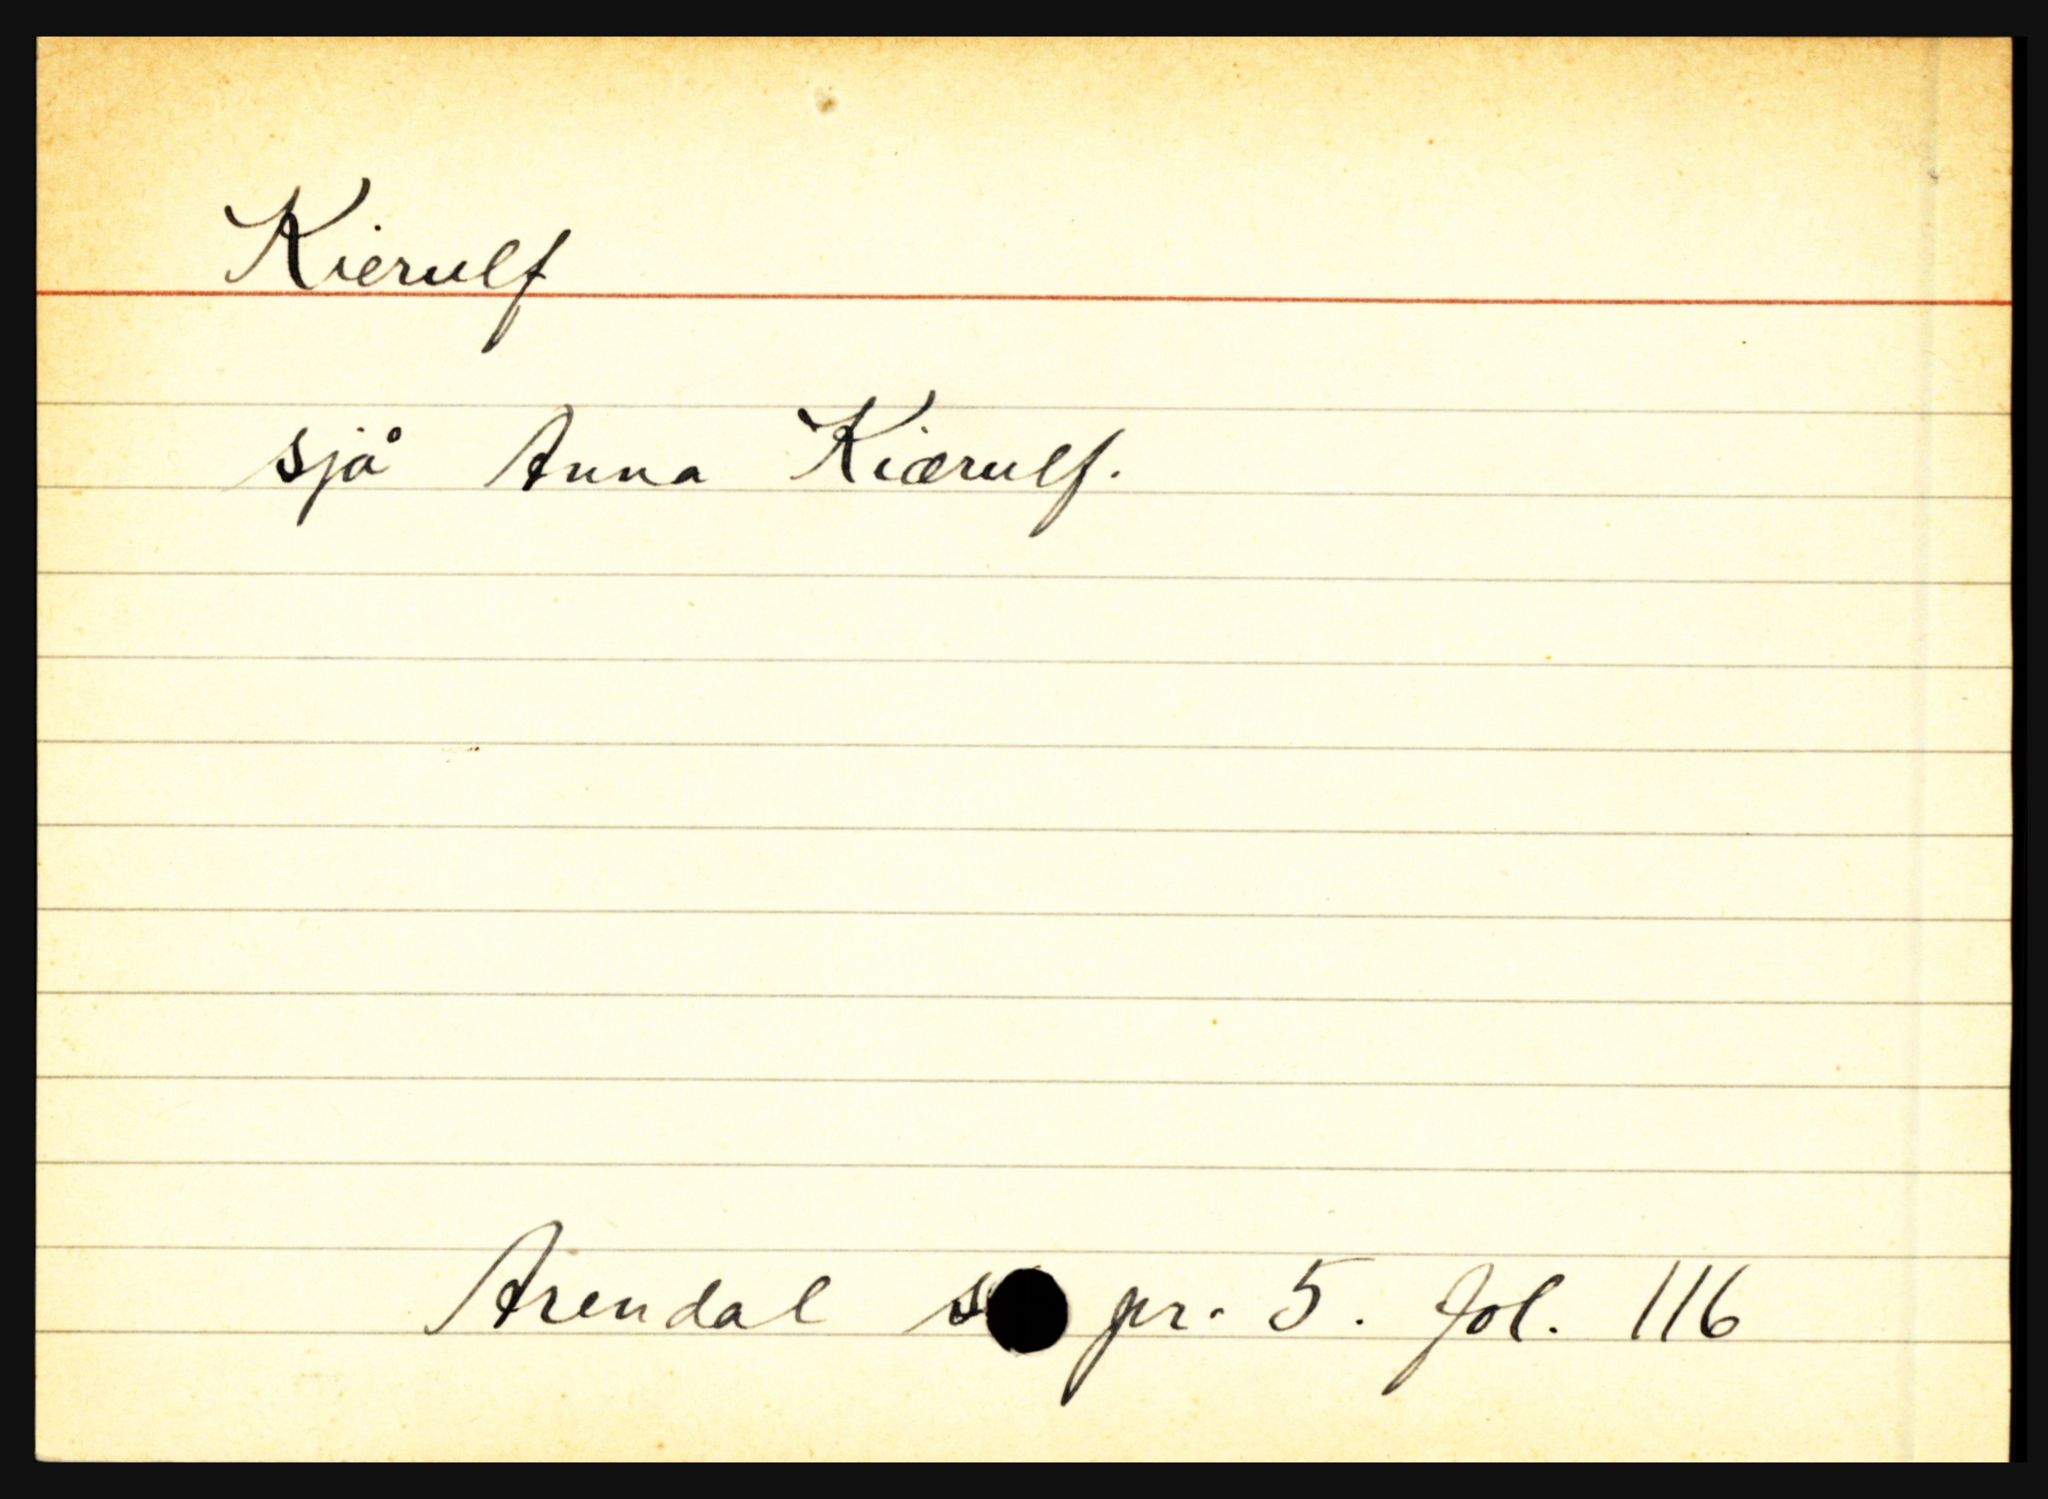 Kierulf
sjå Anna Kiærulf.
Arendal pr. 5. fol. 116